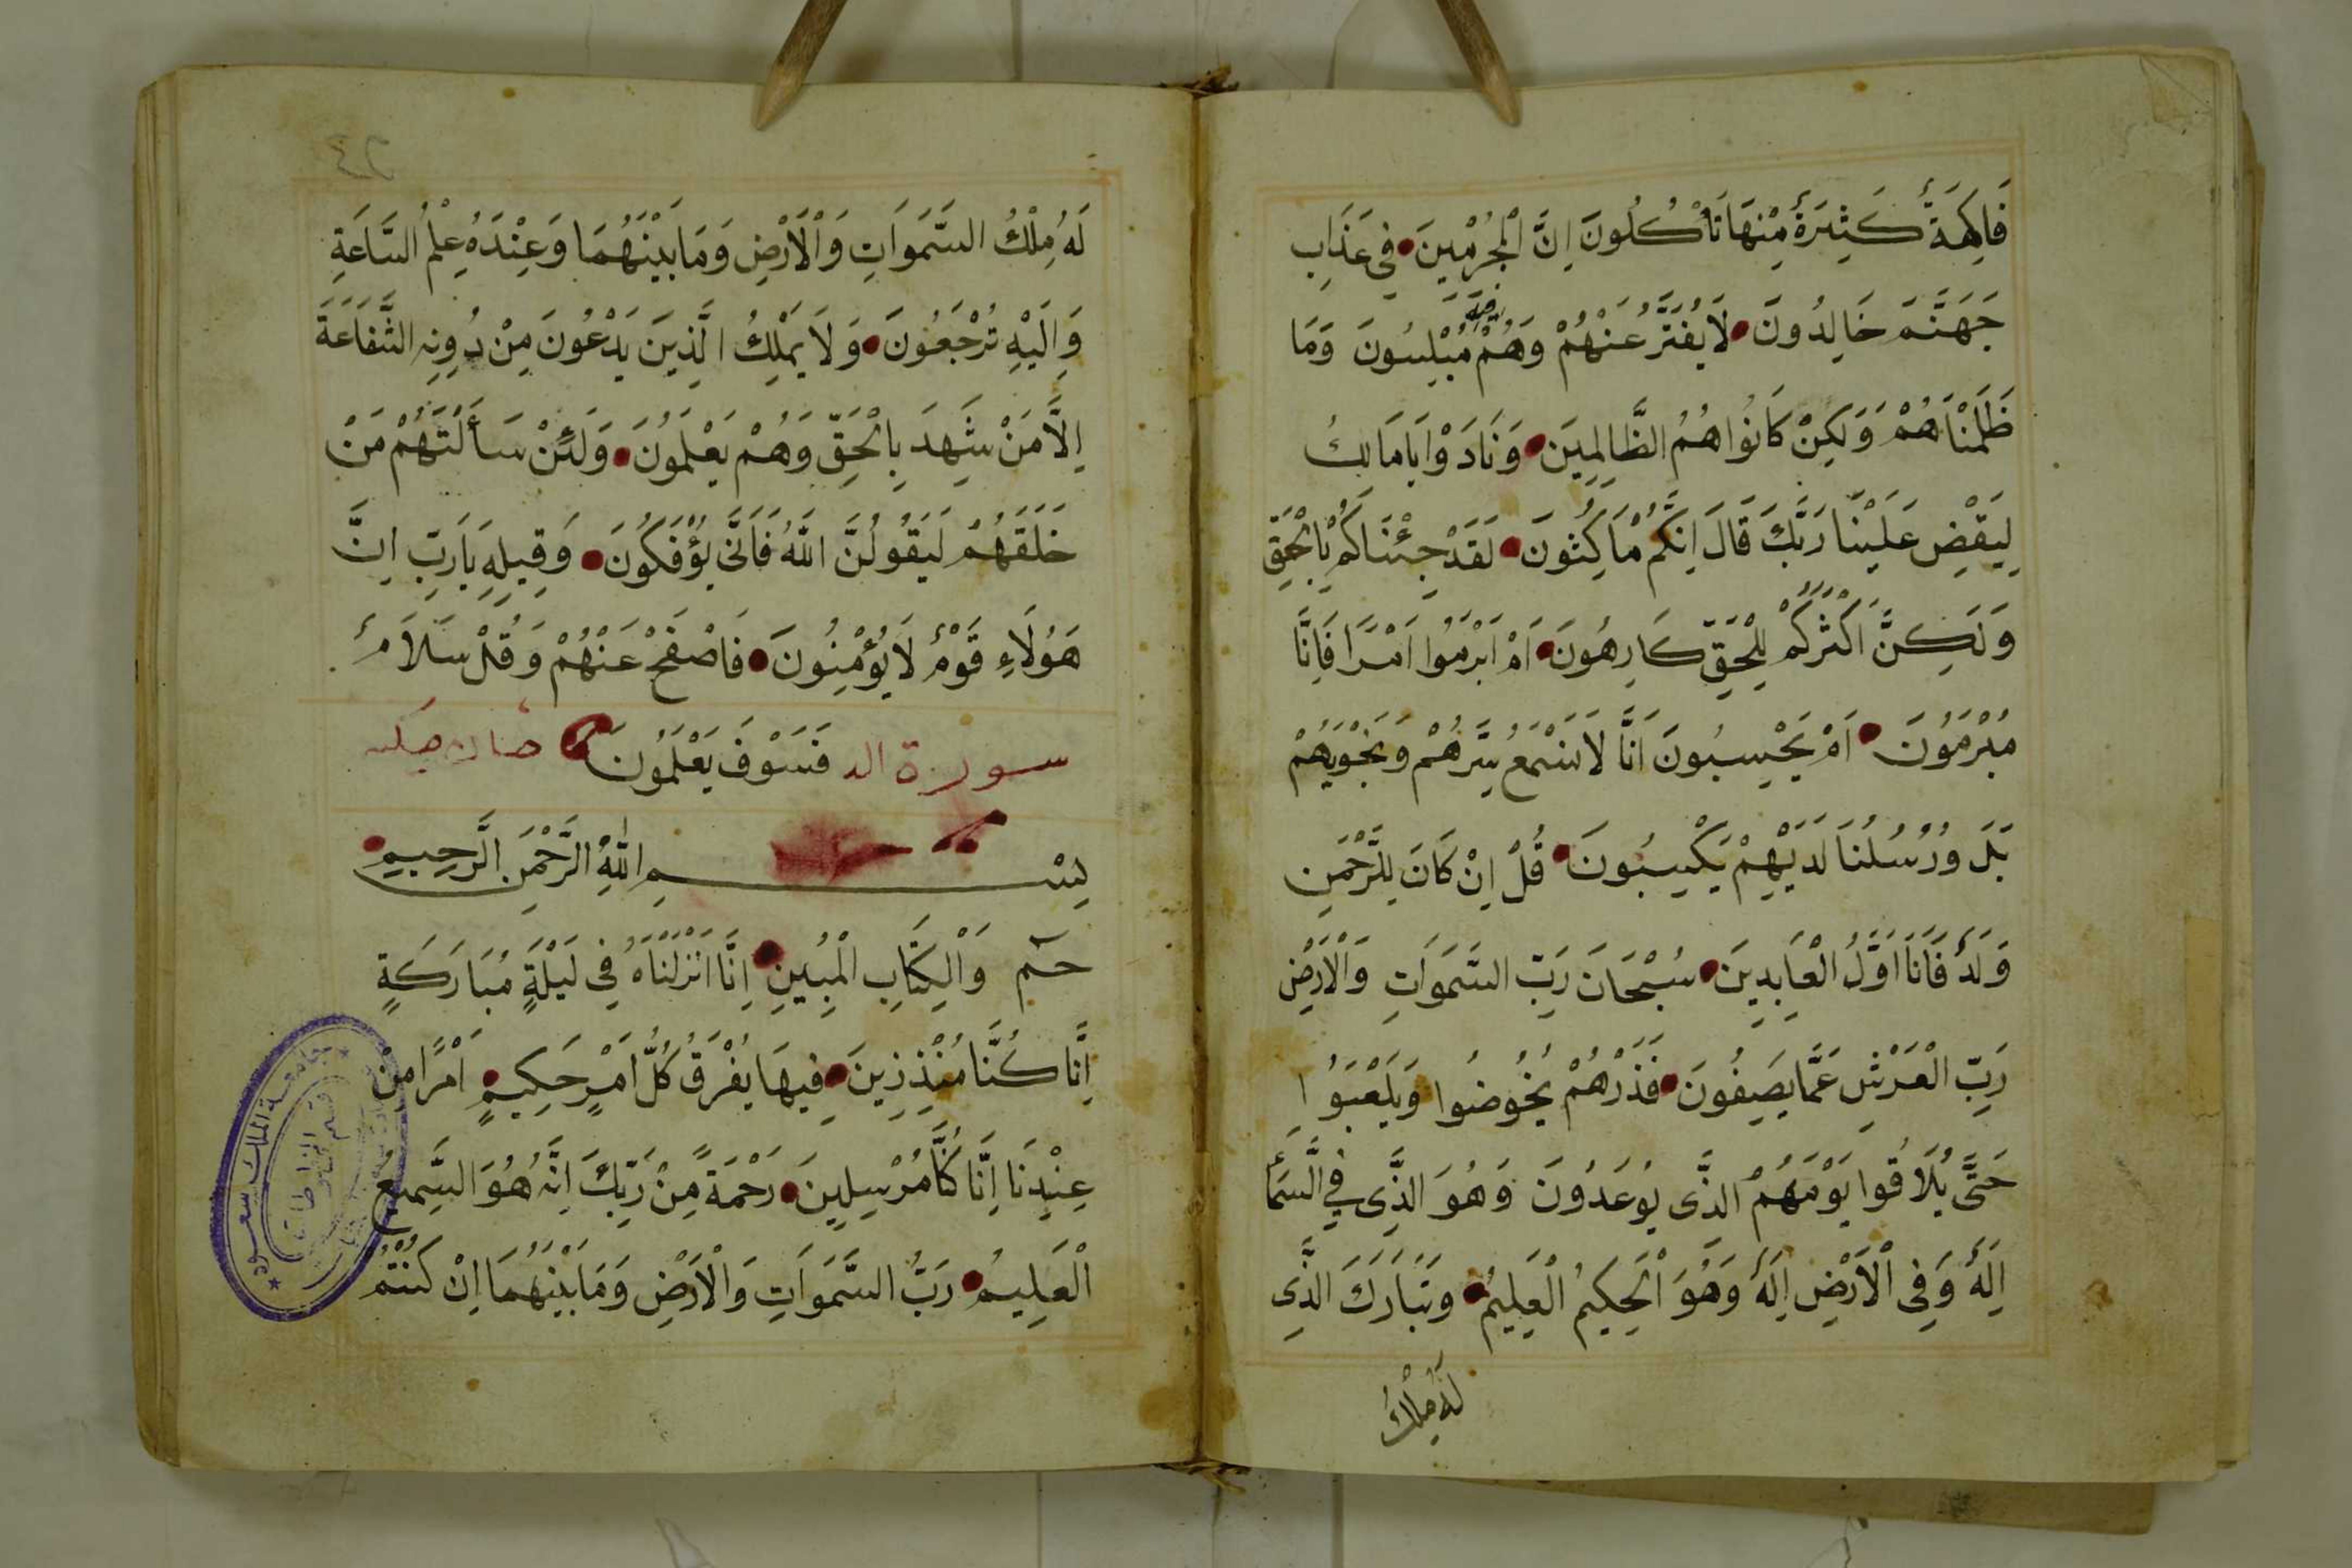 فَاكِهَةٌ كَثِيرَةٌ مِنْهَا تَأْكُلُونَ اِنَّ الْمُجْرِمِينَ فِي عَذَابِ
جَهَنَّمَ خَالِدُونَ لَا يُفَتَّرُ عَنْهُمْ وَهُمْ فِيهِ مُبْلِسُونَ وَمَا
ظَلَمْنَاهُمْ وَلَكِنْ كَانُوا هُمُ الظَّالِمِينَ وَنَادَوْا يَا مَالِكُ
لِيَقْضِ عَلَيْنَا رَبُّكَ قَالَ اِنَّكُمْ مَاكِثُونَ لَقَدْ جِئْنَاكُمْ بِالْحَقِّ
وَلَكِنَّ اَكْثَرَكُمْ لِلْحَقِّ كَارِهُونَ اَمْ اَبْرَمُوا اَمْرًا فَاِنَّا
مُبْرِمُونَ اَمْ يَحْسِبُونَ اَنَّا لَا نَسْمَعُ سِرَّهُمْ وَنَجْوَيهُمْ
بَلَى وَرُسُلُنَا لَدَيْهِمْ يَكْتِبُونَ قُلْ اِنْ كَانَ لِلرَّحْمَنِ
وَلَدٌ فَاَنَا اَوَّلُ الْعَابِدِينَ سُبْحَانَ رَبِّ السَّمَوَاتِ وَالْاَرْضِ
رَبِّ الْعَرْشِ عَمَّا يَصِفُونَ فَذَرْهُمْ يَخُوضُوا وَيَلْعَبُوا
حَتَّى يُلَاقُوا يَوْمَهُمُ الَّذِى يُوعَدُونَ وَهُوَ الَّذِى فِي السَّمَاءِ
اِلَهٌ وَفِى الْاَرْضِ اِلَهٌ وَهُوَ الْحَكِيمُ الْعَلِيمُ وَتَبَارَكَ الَّذِى
لَهُ مُلْكُ
٢٤
لَهُ مُلْكُ السَّمَوَاتِ وَالْاَرْضِ وَمَا بَيْنَهُمَا وَعِنْدَهُ عِلْمُ السَّاعَةِ
وَاِلَيْهِ تُرْجَعُونَ وَلَا يَمْلِكُ الَّذِينَ يَدْعُونَ مِنْ دُونِهِ الشَّفَاعَةَ
اِلَّا مَنْ شَهِدَ بِالْحَقِّ وَهُمْ يَعْلَمُونَ وَلَئِنْ سَأَلْتَهُمْ مَنْ
خَلَقَهُمْ لَيَقُولُنَّ اللَّهُ فَاَنَّى يُؤْفَكُونَ وَقِيلِهِ يَارَبِّ اِنَّ
هَؤُلَاءِ قَوْمٌ لَا يُؤْمِنُونَ فَاصْفَحْ عَنْهُمْ وَقُلْ سَلَامٌ
سورة الد فَسَوْفَ يَعْلَمُونَ خان مكيه
بِسْمِ اللَّهِ الرَّحْمَنِ الرَّحِيمِ
حم وَالْكِتَابِ الْمُبِينِ اِنَّا اَنْزَلْنَاهُ فِى لَيْلَةٍ مُبَارَكَةٍ
اِنَّا كُنَّا مُنْذِرِينَ فِيهَا يُفْرَقُ كُلُّ اَمْرٍ حَكِيمٍ اَمْرًا مِنْ
عِنْدِنَا اِنَّا كُنَّا مُرْسِلِينَ رَحْمَةً مِنْ رَبِّكَ اِنَّهُ هُوَ السَّمِيعُ
الْعَلِيمُ رَبِّ السَّمَوَاتِ وَالْاَرْضِ وَمَا بَيْنَهُمَا اِنْ كُنْتُمْ
جامعة الملك سعود
قسم المخطوطات